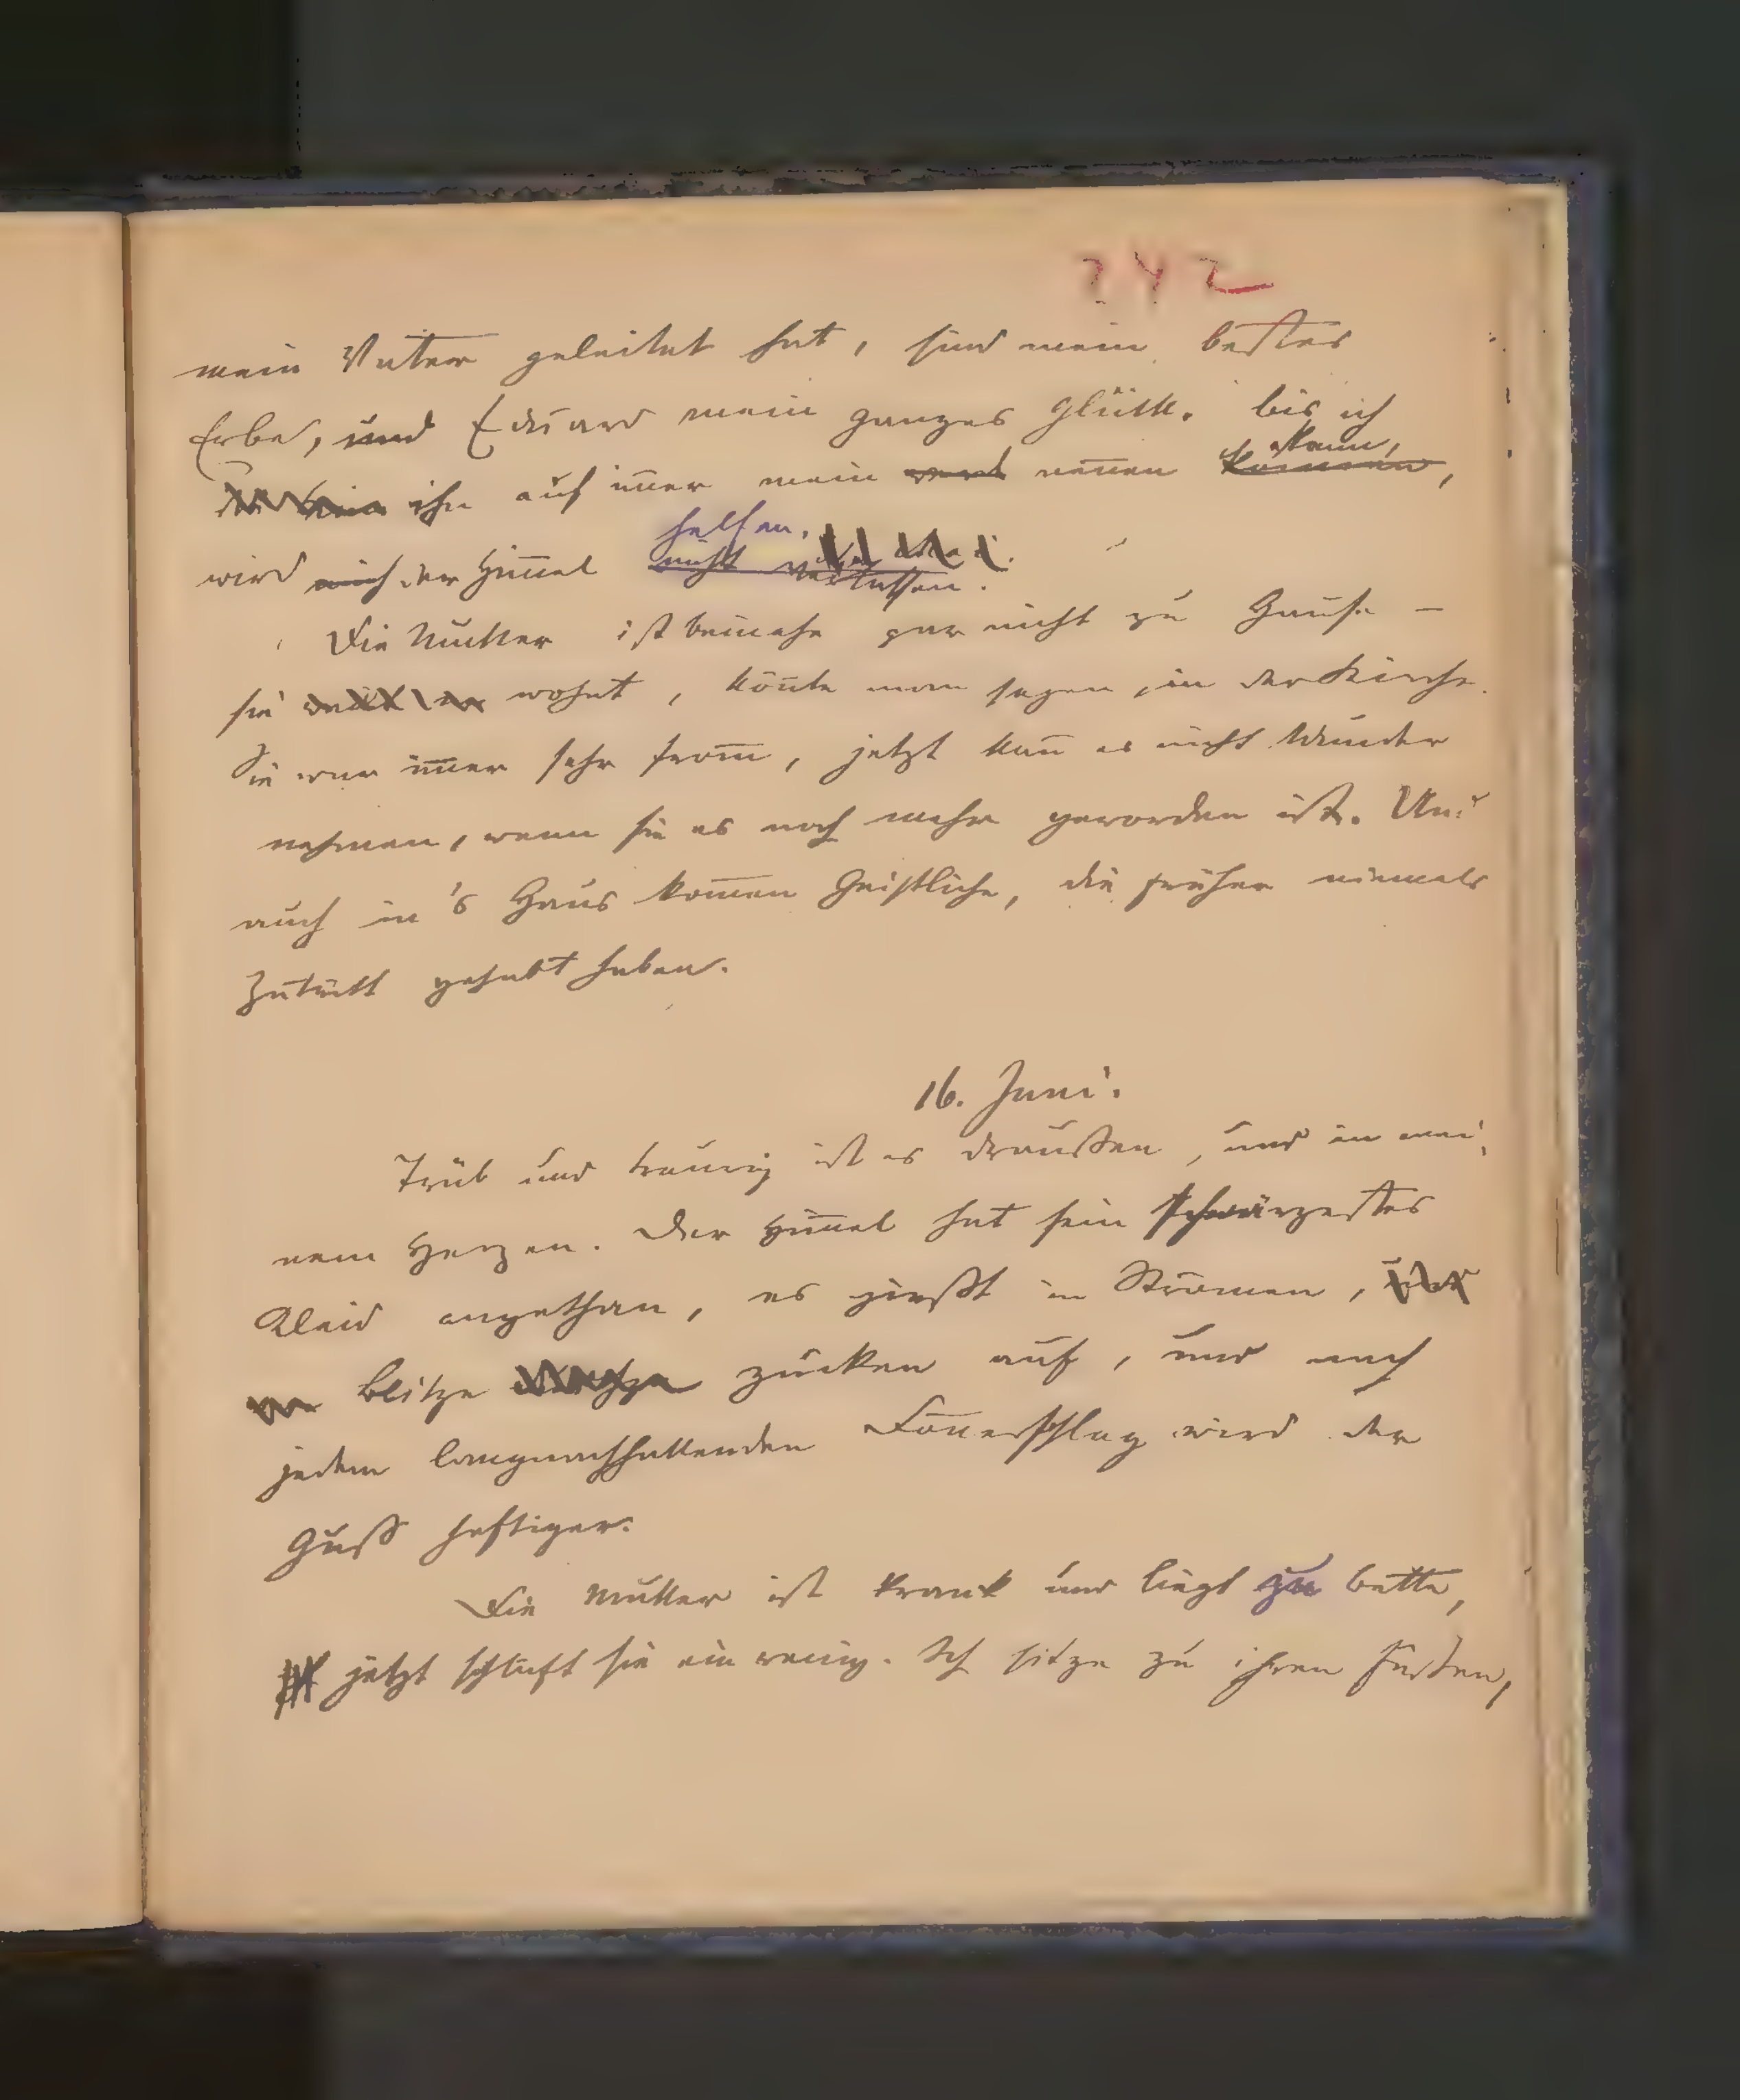 242
mein Vater geleitet hat, sind mein bestes
Erbe, und Eduard mein ganzes Glück. bis ich
ihn auf im̅er mein nen̅en kann,
wird der Him̅el helfen.
nicht verlassen.
Die Mutter ist beinahe gar nicht zu Hause –
sie wohnt, kön̅te man sagen, in der Kirche.
Sie war im̅er sehr from̅, jetzt kan̅ es nicht Wunder
nehmen, wenn sie es noch mehr geworden ist. Und
auch in's Haus kom̅en Geistliche, die früher niemals
Zutritt gehabt haben.
16. Juni.
Trüb und traurig ist es draußen, und in mei-
nem Herzen. Der Him̅el hat sein schwärzestes
Kleid angethan, es gießt in Strömen,
Blitze zucken auf, und nach
jedem langnachhallenden Don̅erschlag wird der
Guß heftiger.
Die Mutter ist krank und liegt zu bette,
jetzt schläft sie ein wenig. Ich sitze zu ihren Füßen,